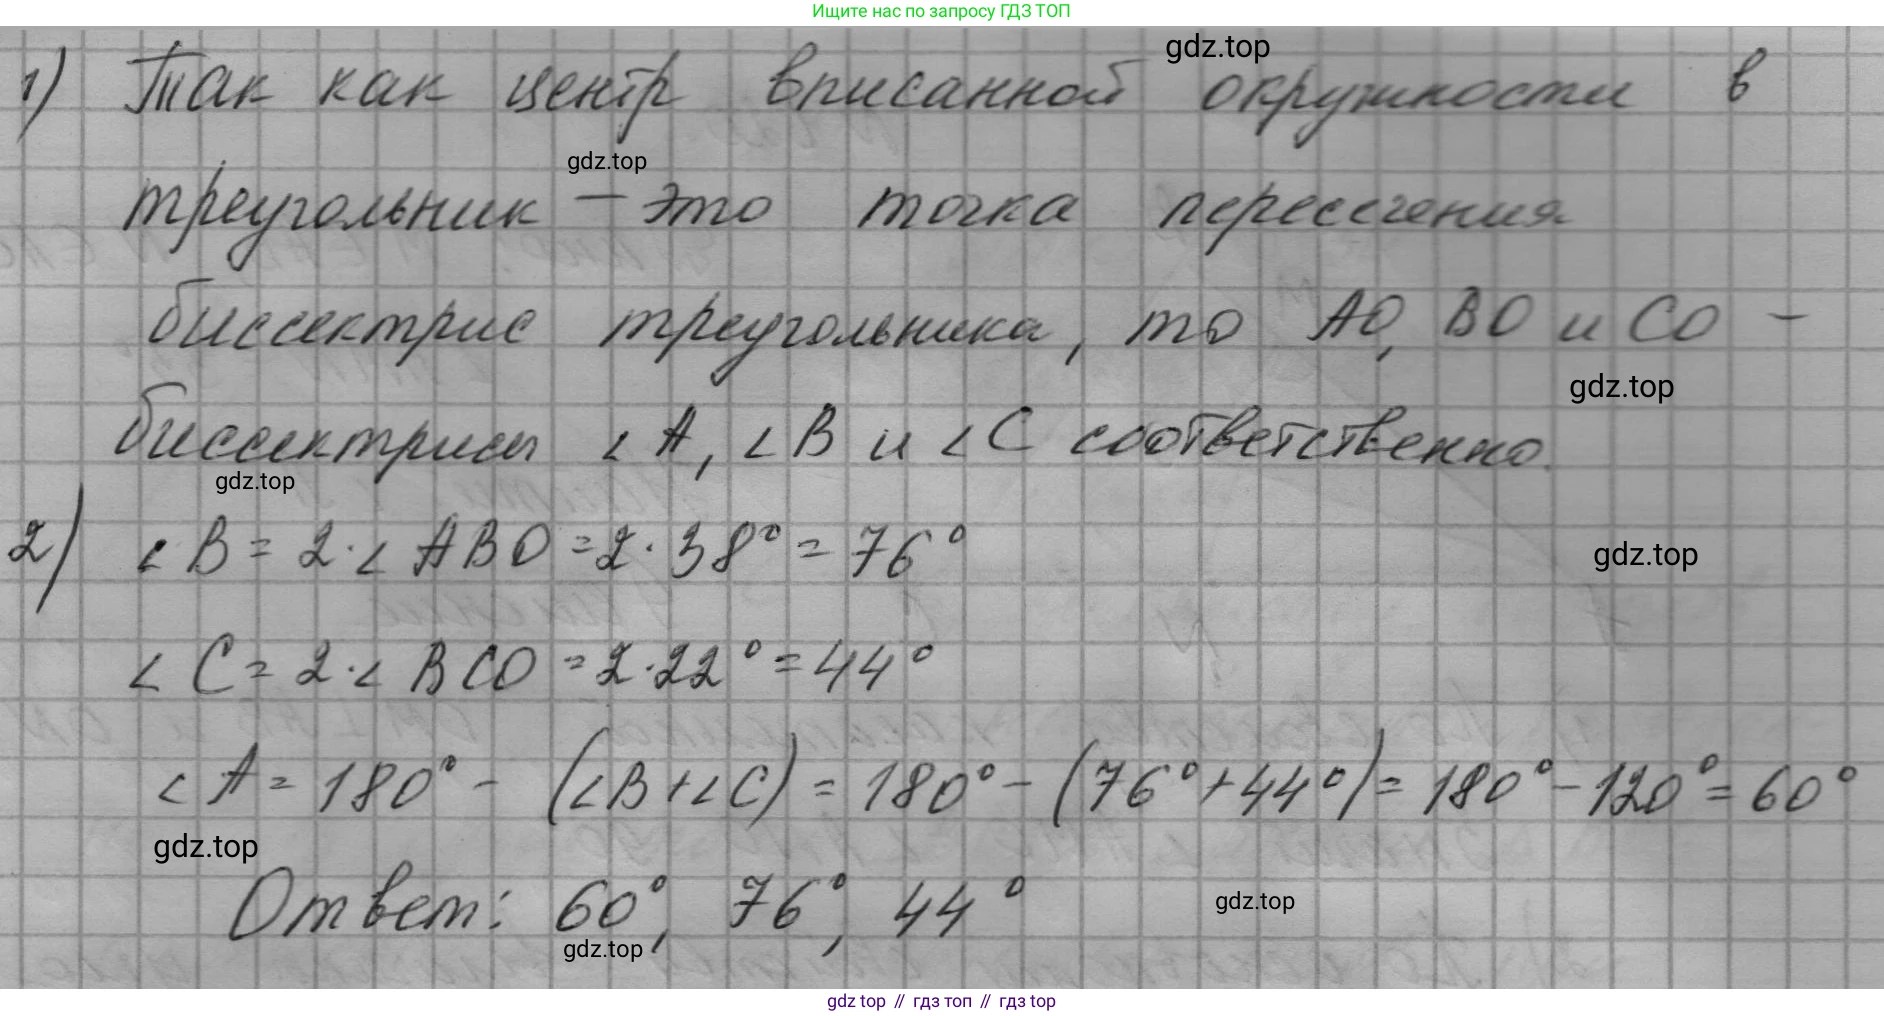 Ищите нас по запросу ГДЗ ТОП
gdz.top
1) Так как центр вписанной окружности в
gdz.top
треугольник – это точка пересечения
биссектрис треугольника, то AO, BO и CO –
gdz.top
биссектрисы ∠A, ∠B и ∠C соответственно.
gdz.top
2) ∠B = 2·∠ABO = 2·38° = 76°
gdz.top
∠C = 2·∠BCO = 2·22° = 44°
∠A = 180° – (∠B + ∠C) = 180° – (76° + 44°) = 180° – 120° = 60°
gdz.top
Ответ: 60°, 76°, 44°
gdz.top
gdz.top
gdz top // гдз топ // гдз top